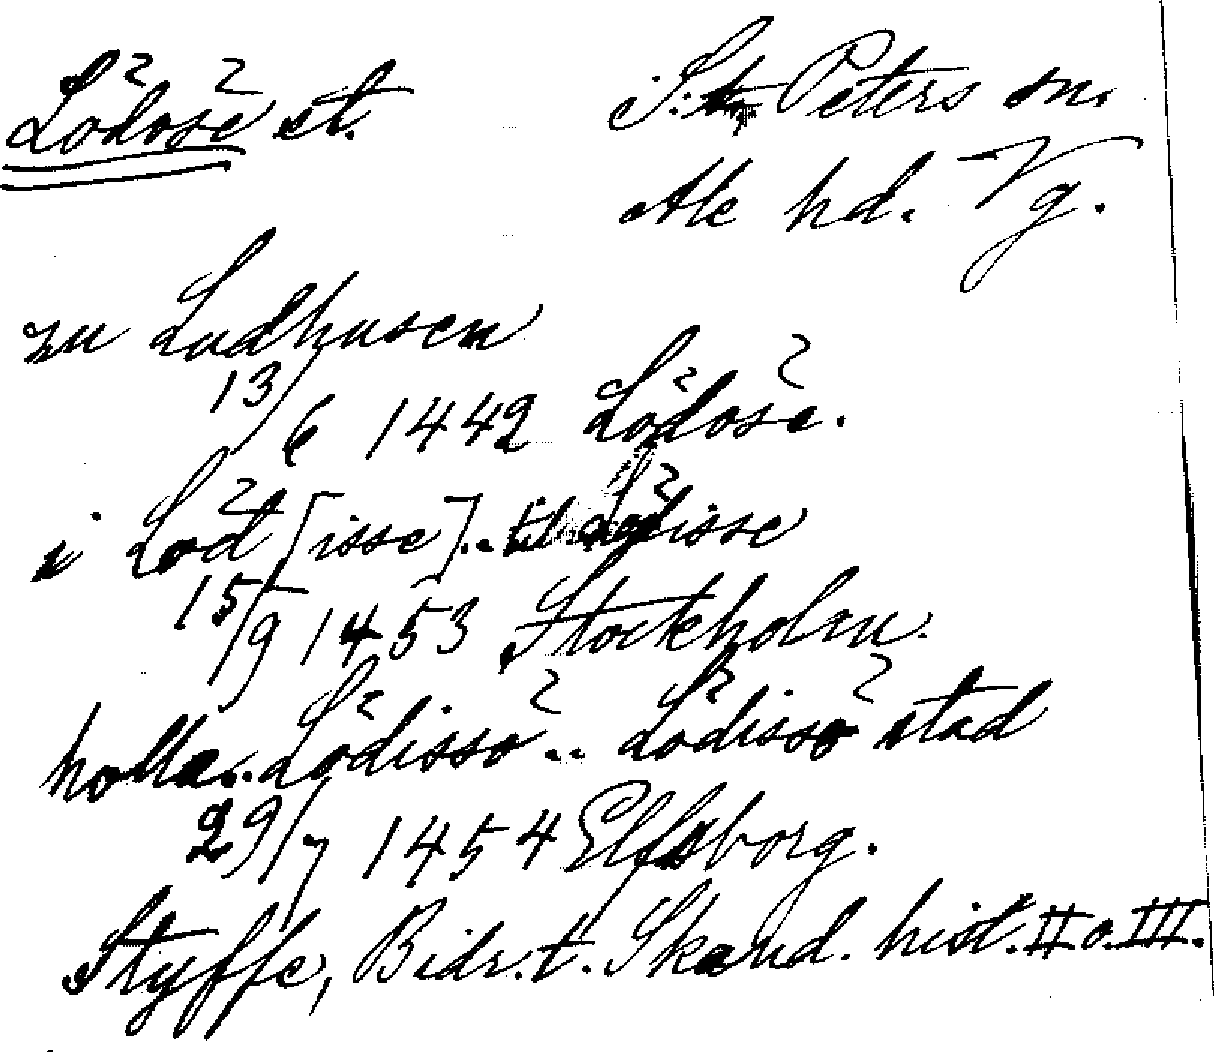 Lödöse st. S:t Peters sn.
Ale hd. Vg.
zu Ludhusen
13/6 1442 Lödöse.
i Löd [isse].. til Lödisse
15/9 1453 Stockholm.
holla.. Lödissö.. Lödissö stad
29/7 1454 Elfsborg.
Styffe, Bidr. t. Skand. hist. II o. III.